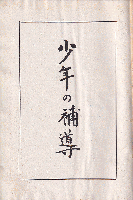 少年の補導